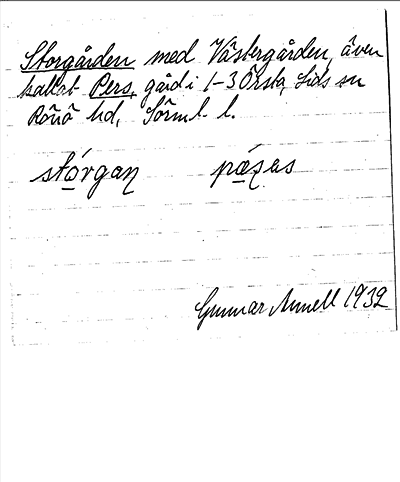 Storgården med Västergården, även
kallat Pers, gård i 1-3 Örsta, Lids sn
Rönö hd, Sörml. l.
stórgan pǽʂas
Gunnar Annell 1932